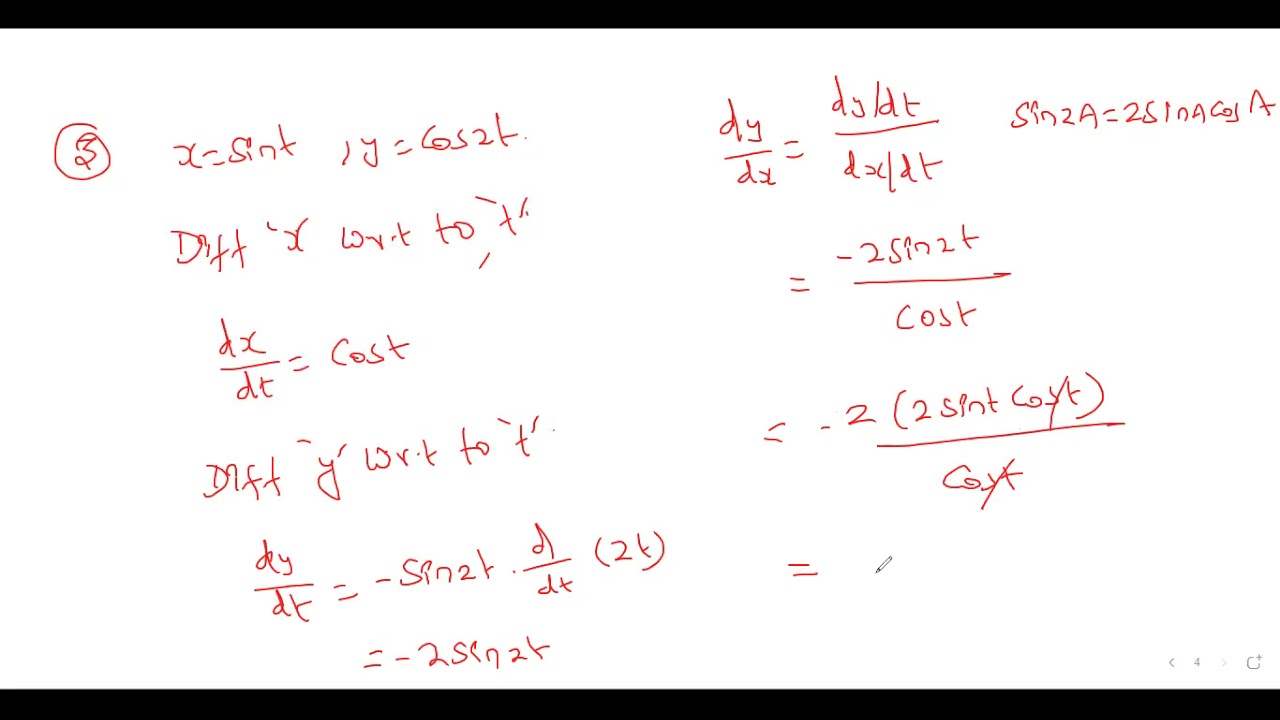 ③ x=sint , y=cos2t.
Diff 'x' wr.t to 't'
dx/dt = cost
Diff 'y' wr.t to 't'.
dy/dt = -sin2t . d/dt (2t)
= -2sin2t
dy/dx = dy/dt / dx/dt
sin2A=2sinAcosA
= -2sin2t / cost
= -2 (2sint cost) / cost
=
4